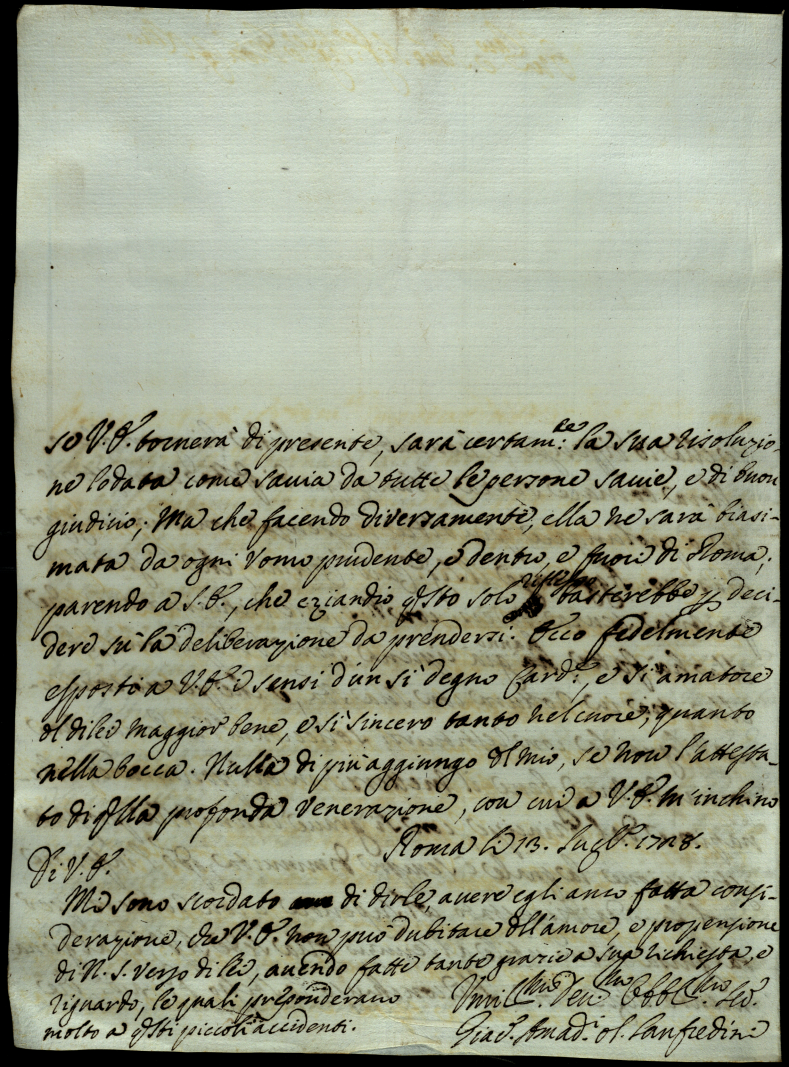 se V. E. tornerà di presente, sarà certam.te la sua risoluzio-
ne lodata come savia da tutte le persone savie, e di buon
giudicio; Ma che facendo diversamente, ella ne sarà biasi-
mata da ogni Vomo prudente, e dentro, e fuori di Roma;
parendo a S. E., che eziandio qsto solo riflesso basterebbe p deci-
dere su la deliberazione da prendersi. Ecco fedelmente
esposti a V. E. i sensi d'un sì degno Card.e, e sì amatore
del di lei maggior bene, e sì sincero tanto nel cuore, quanto
nella bocca. Nulla di più aggiungo del mio, se non l'attesta-
to di qlla profonda venerazione, con cui a V. E. m'inchino
Roma li 13. Lugl. 1728.
Di V. E.
Mi sono scordato di dirle, avere egli anco fatta consi-
derazione, che V. E. non può dubitare dell'amore, e propensione
di N. S. verso di lei, avendo fatte tante grazie a sua richiesta, e
riguardo, le quali preponderano
molto a qsti piccoli accidenti.
Umil.mo Dev.mo Obbl.mo Ser.
Giac. Amad. Lanfredini